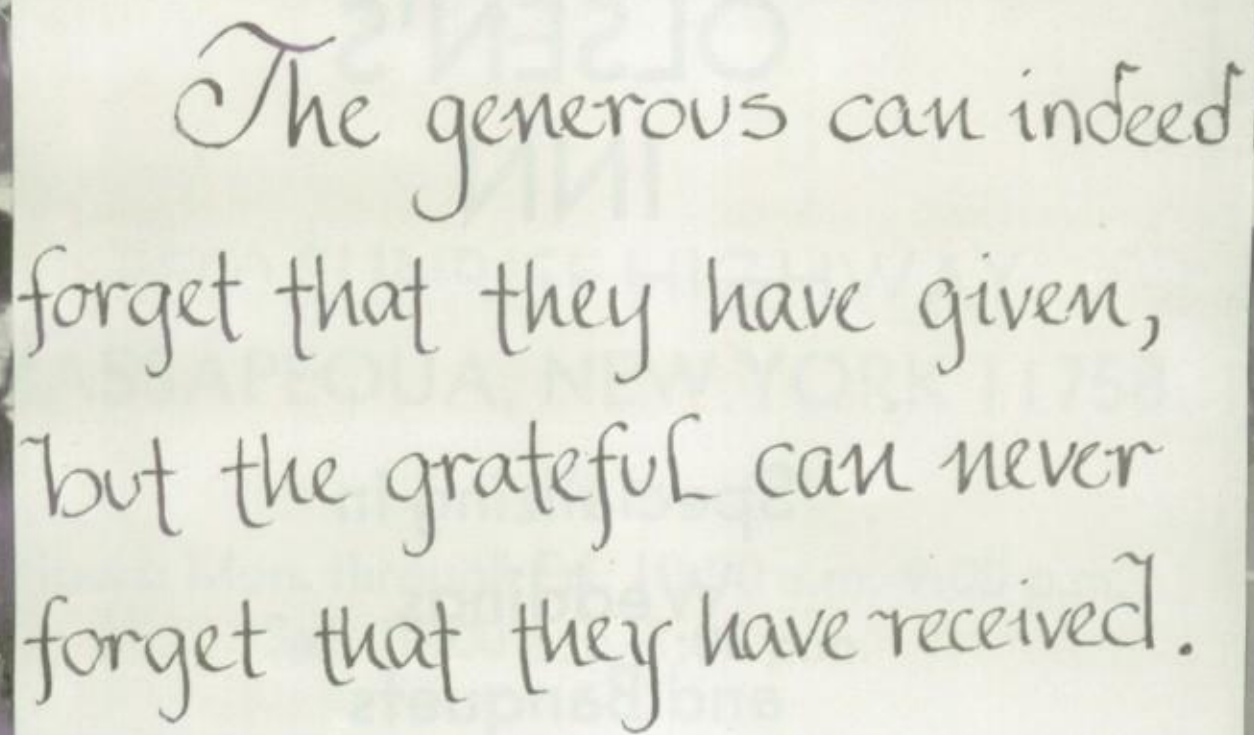 The generous can indeed
forget that they have given,
but the grateful can never
forget that they have received.